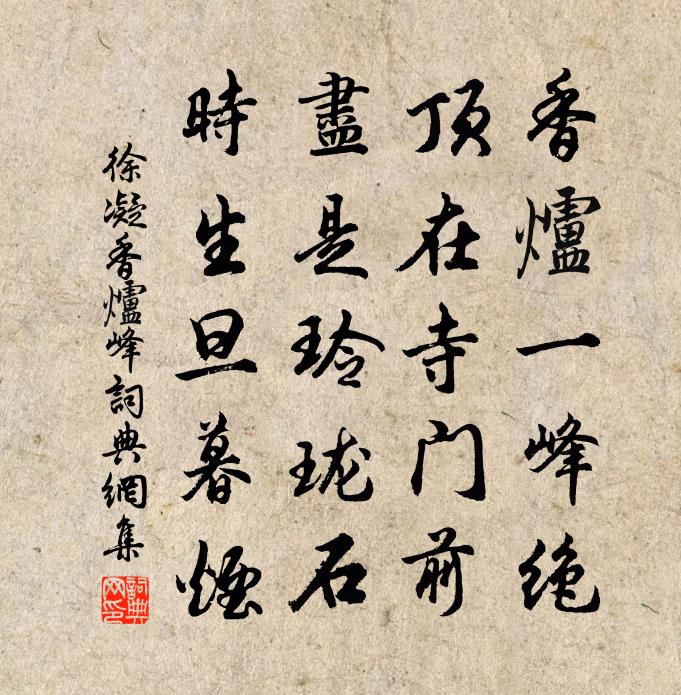 香爐一峰絶
頂在寺门前
盡是玲珑石
時生旦暮煙
徐凝香爐峰詞典網集
詞典网印